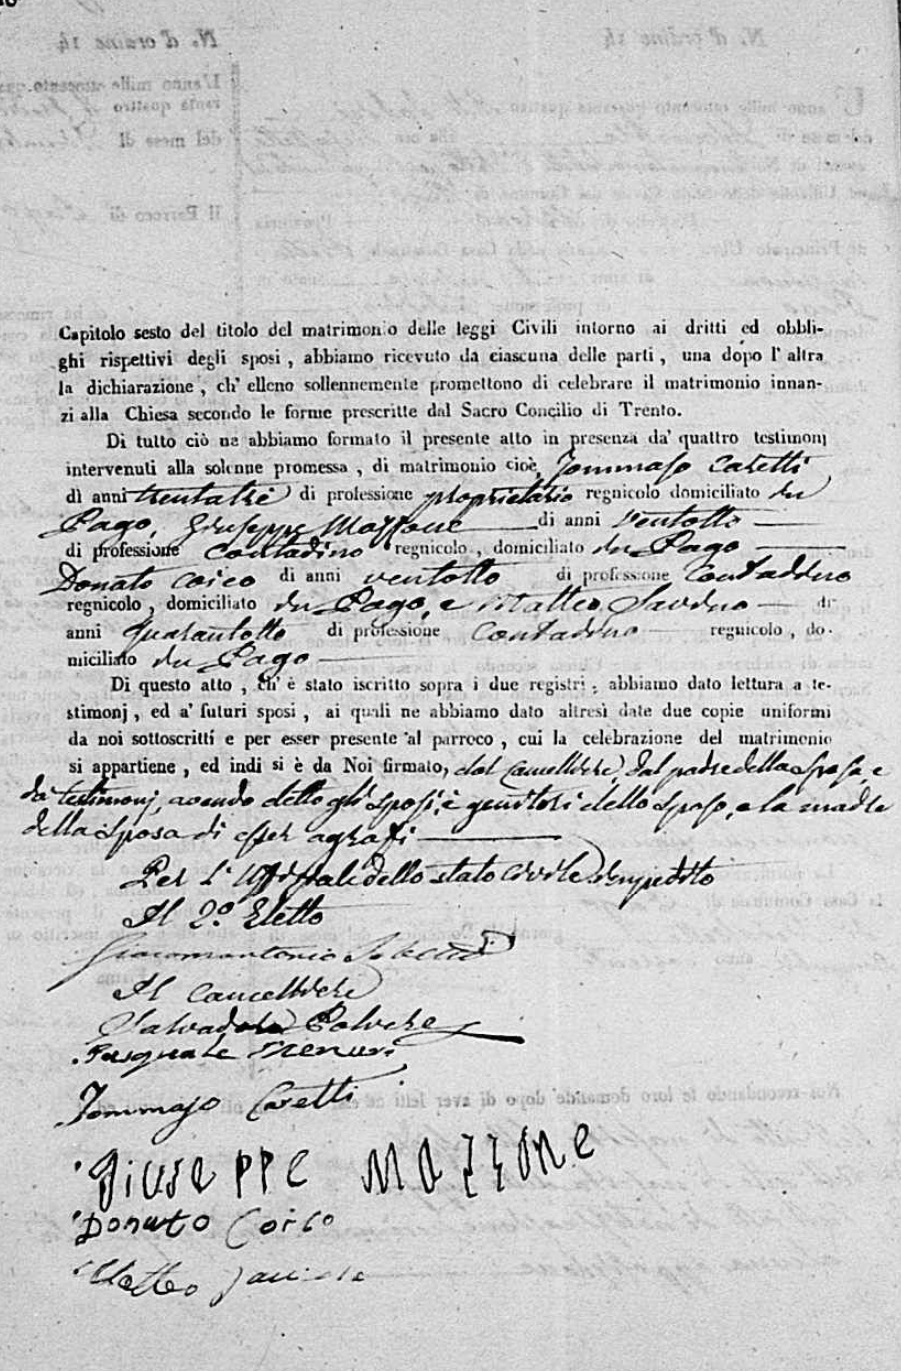 Capitolo sesto del titolo del matrimonio delle leggi Civili intorno ai dritti ed obbli-
ghi rispettivi degli sposi, abbiamo ricevuto da ciascuna delle parti, una dopo l' altra
la dichiarazione, ch' elleno sollennemente promettono di celebrare il matrimonio innan-
zi alla Chiesa secondo le forme prescritte dal Sacro Concilio di Trento.
Di tutto ciò ne abbiamo formato il presente atto in presenza da' quattro testimonj
intervenuti alla solenne promessa, di matrimonio cioè, Tommaso Caretti
di anni trentatrè di professione proprietario regnicolo domiciliato in
Pago, Giuseppe Mazzone di anni Ventotto
di professione Contadino regnicolo, domiciliato in Pago
Donato Coico di anni ventotto di professione Contadino
regnicolo, domiciliato in Pago, e Matteo Savino di
anni quarantotto di professione Contadino regnicolo, do-
miciliato in Pago
Di questo atto, ch' è stato iscritto sopra i due registri, abbiamo dato lettura a te-
stimonj, ed a' futuri sposi, ai quali ne abbiamo dato altresì date due copie uniformi
da noi sottoscritti e per esser presente al parroco, cui la celebrazione del matrimonio
si appartiene, ed indi si è da Noi firmato, dal Cancelliere, dal padre della Sposa e
da' testimonj, avendo detto gli sposi, i genitori dello sposo, e la madre
della Sposa di esser agrafi
Per l' Uffiziale dello stato civile impedito
Il 2.° Eletto
Giacomantonio
Il Cancelliere
Salvadore Polvere
Pasquale
Tommaso Caretti
Giuseppe Mazzone
Donato Coico
Matteo Savino